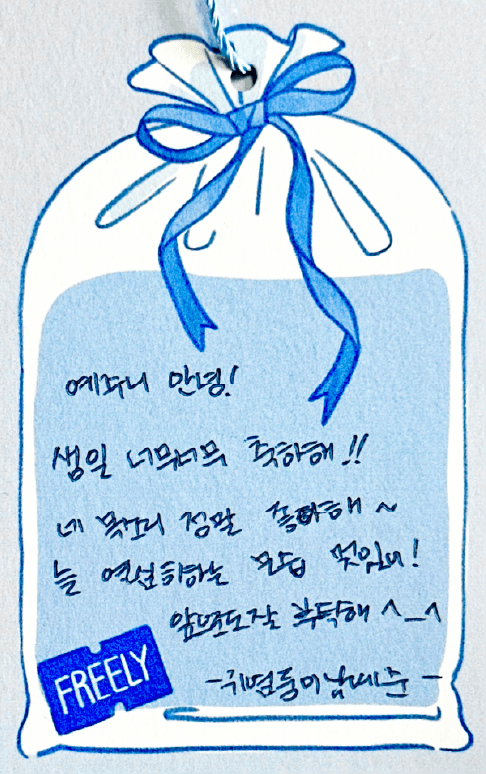 예주니 안녕!
생일 너무너무 축하해!!
네 목소리 정말 좋아해~
늘 열심히하는 모습 멋있어!
앞으로도 잘 부탁해 ^_^
-귀염둥이남예준-
FREELY